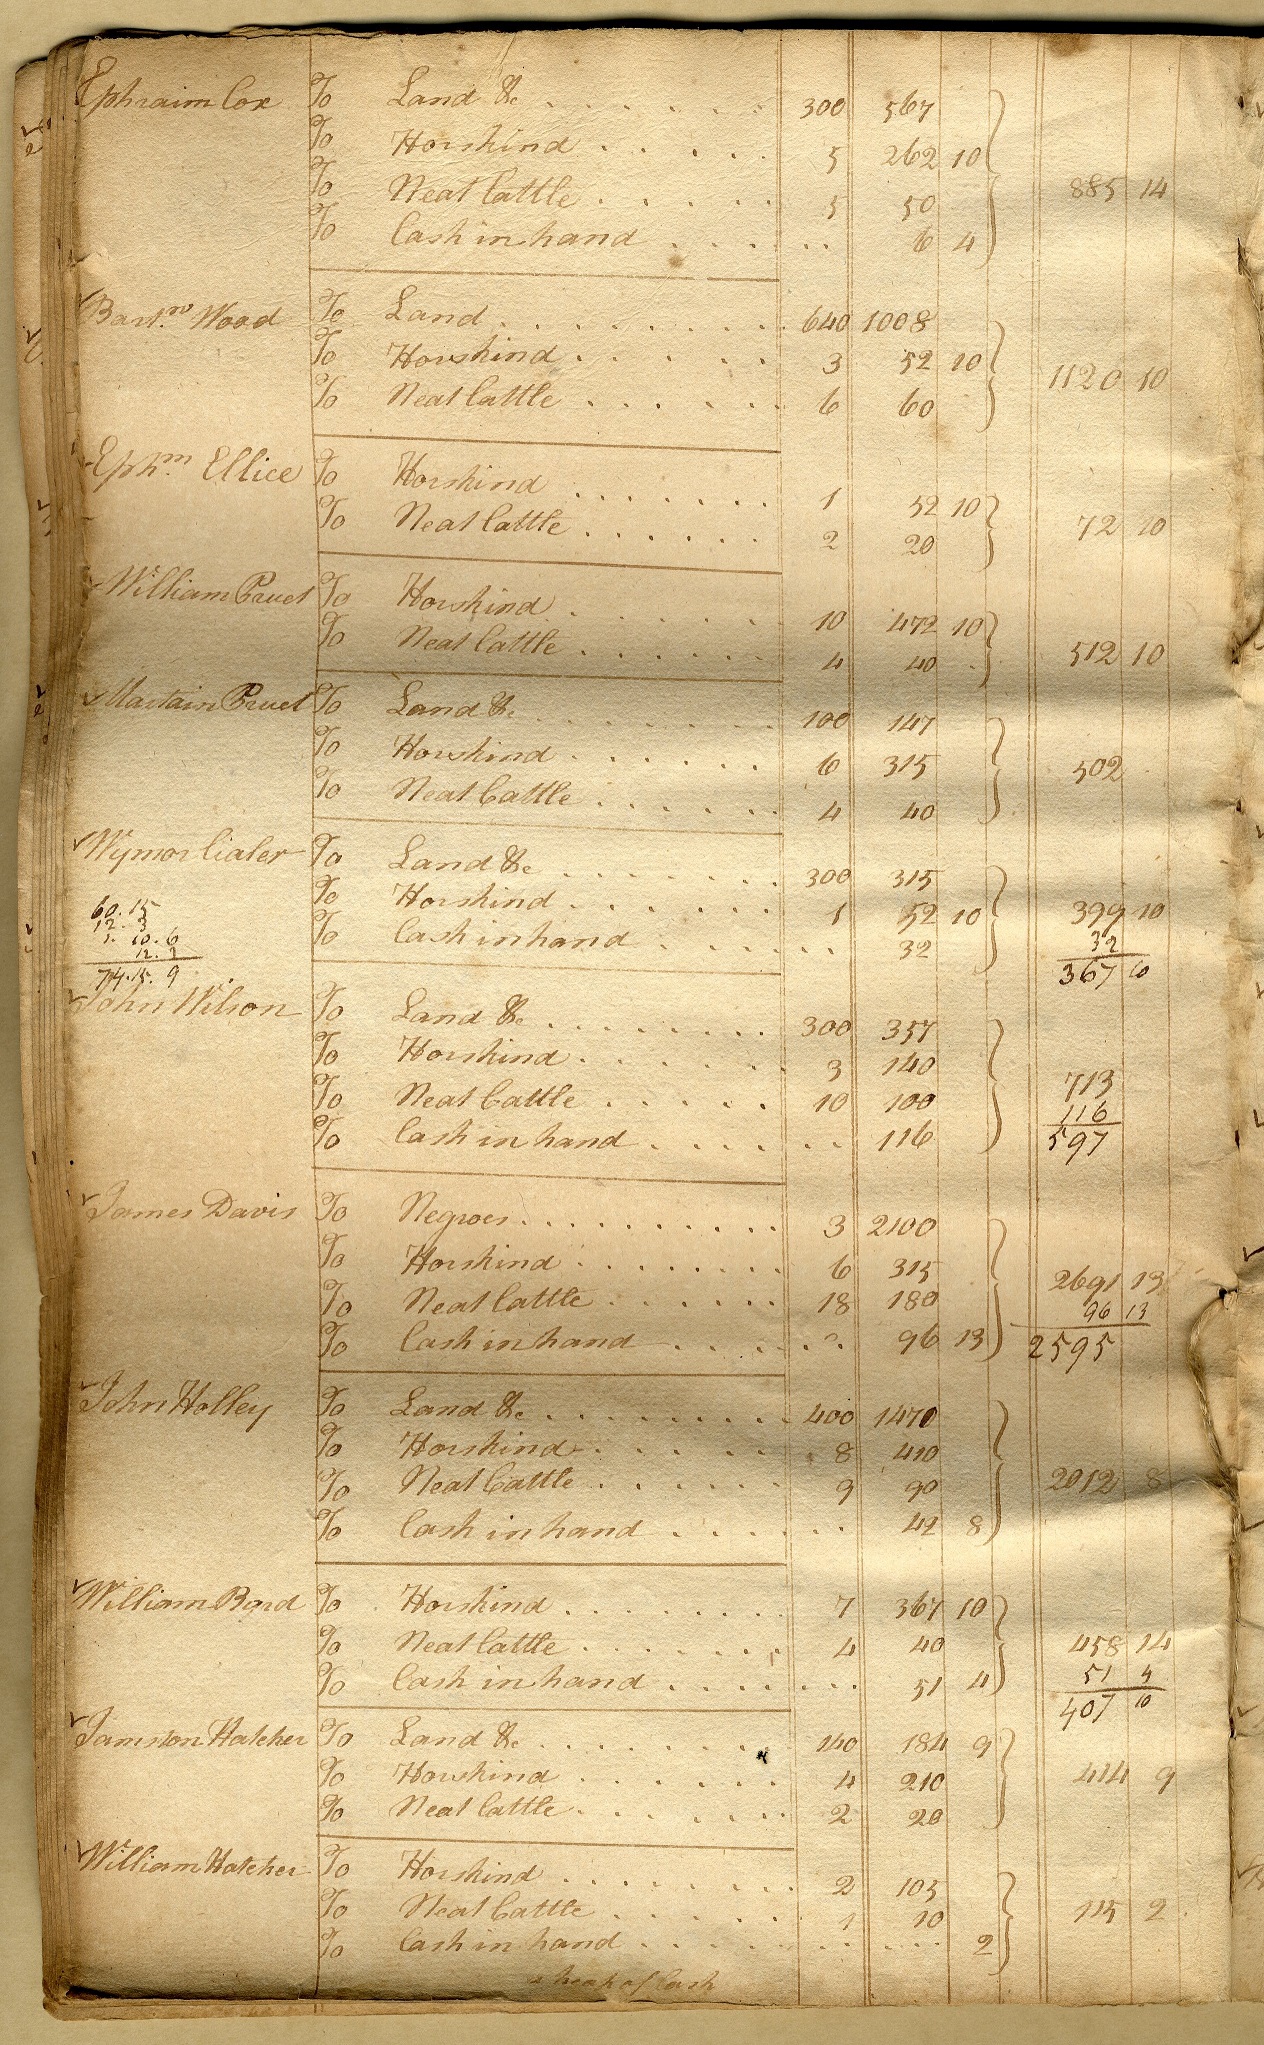 Ephraim Cox To Land &c . . . . . . 300 567
To Horskind . . . . . 5 262 10
To Neat Cattle . . . . . 5 50 885 14
To Cash in hand . . . . . . 6 4
Bart.m Wood To Land . . . . . . . . . 640 1008
To Horskind . . . . . . 3 52 10 1120 10
To Neat Cattle . . . . . . 6 60
Eph.m Ellice To Horskind . . . . . . . 1 52 10
To Neat Cattle . . . . . . . 2 20 72 10
William Pruet To Horskind . . . . . . . 10 472 10
To Neat Cattle . . . . . . 4 40 512 10
Martain Pruet To Land &c . . . . . . . . 100 147
To Horskind . . . . . . . 6 315 502
To Neat Cattle . . . . . . 4 40
To Land &c . . . . . . . 300 315
To Horskind . . . . . . . 1 52 10 399 10
To Cash in hand . . . . . . . 32 32
367 10
60. 15
12. 3
1. 10. 6
12. 2
74. 15. 9
John Wilson To Land &c . . . . . . . . 300 357
To Horskind . . . . . . 3 140 713
To Neat Cattle . . . . . 10 100 116
To Cash in hand . . . . . . . 116 597
James Davis To Negroes . . . . . . . . . . 3 2100
To Horskind . . . . . . . . . 6 315 2691 13
To Neat Cattle . . . . . . . 18 180 96 13
To Cash in hand . . . . . . . 96 13 2595
John Holley To Land &c . . . . . . . . . 400 1470
To Horskind . . . . . . 8 410
To Neat Cattle . . . . . . 9 90 2012 8
To Cash in hand . . . . . . 42 8
William Bard To Horskind . . . . . . . . 7 367 10
To Neat Cattle . . . . . . . 4 40 458 14
To Cash in hand . . . . . . . 51 4 51 4
407 10
Jamston Hatcher To Land &c . . . . . . . . 140 184 9
To Horskind . . . . . . 4 210 414 9
To Neat Cattle . . . . . . 2 20
William Hatcher To Horskind . . . . . . . . 2 105
To Neat Cattle . . . . . . 1 10 115 2
To Cash in hand . . . . . . . . . 2
of Cash